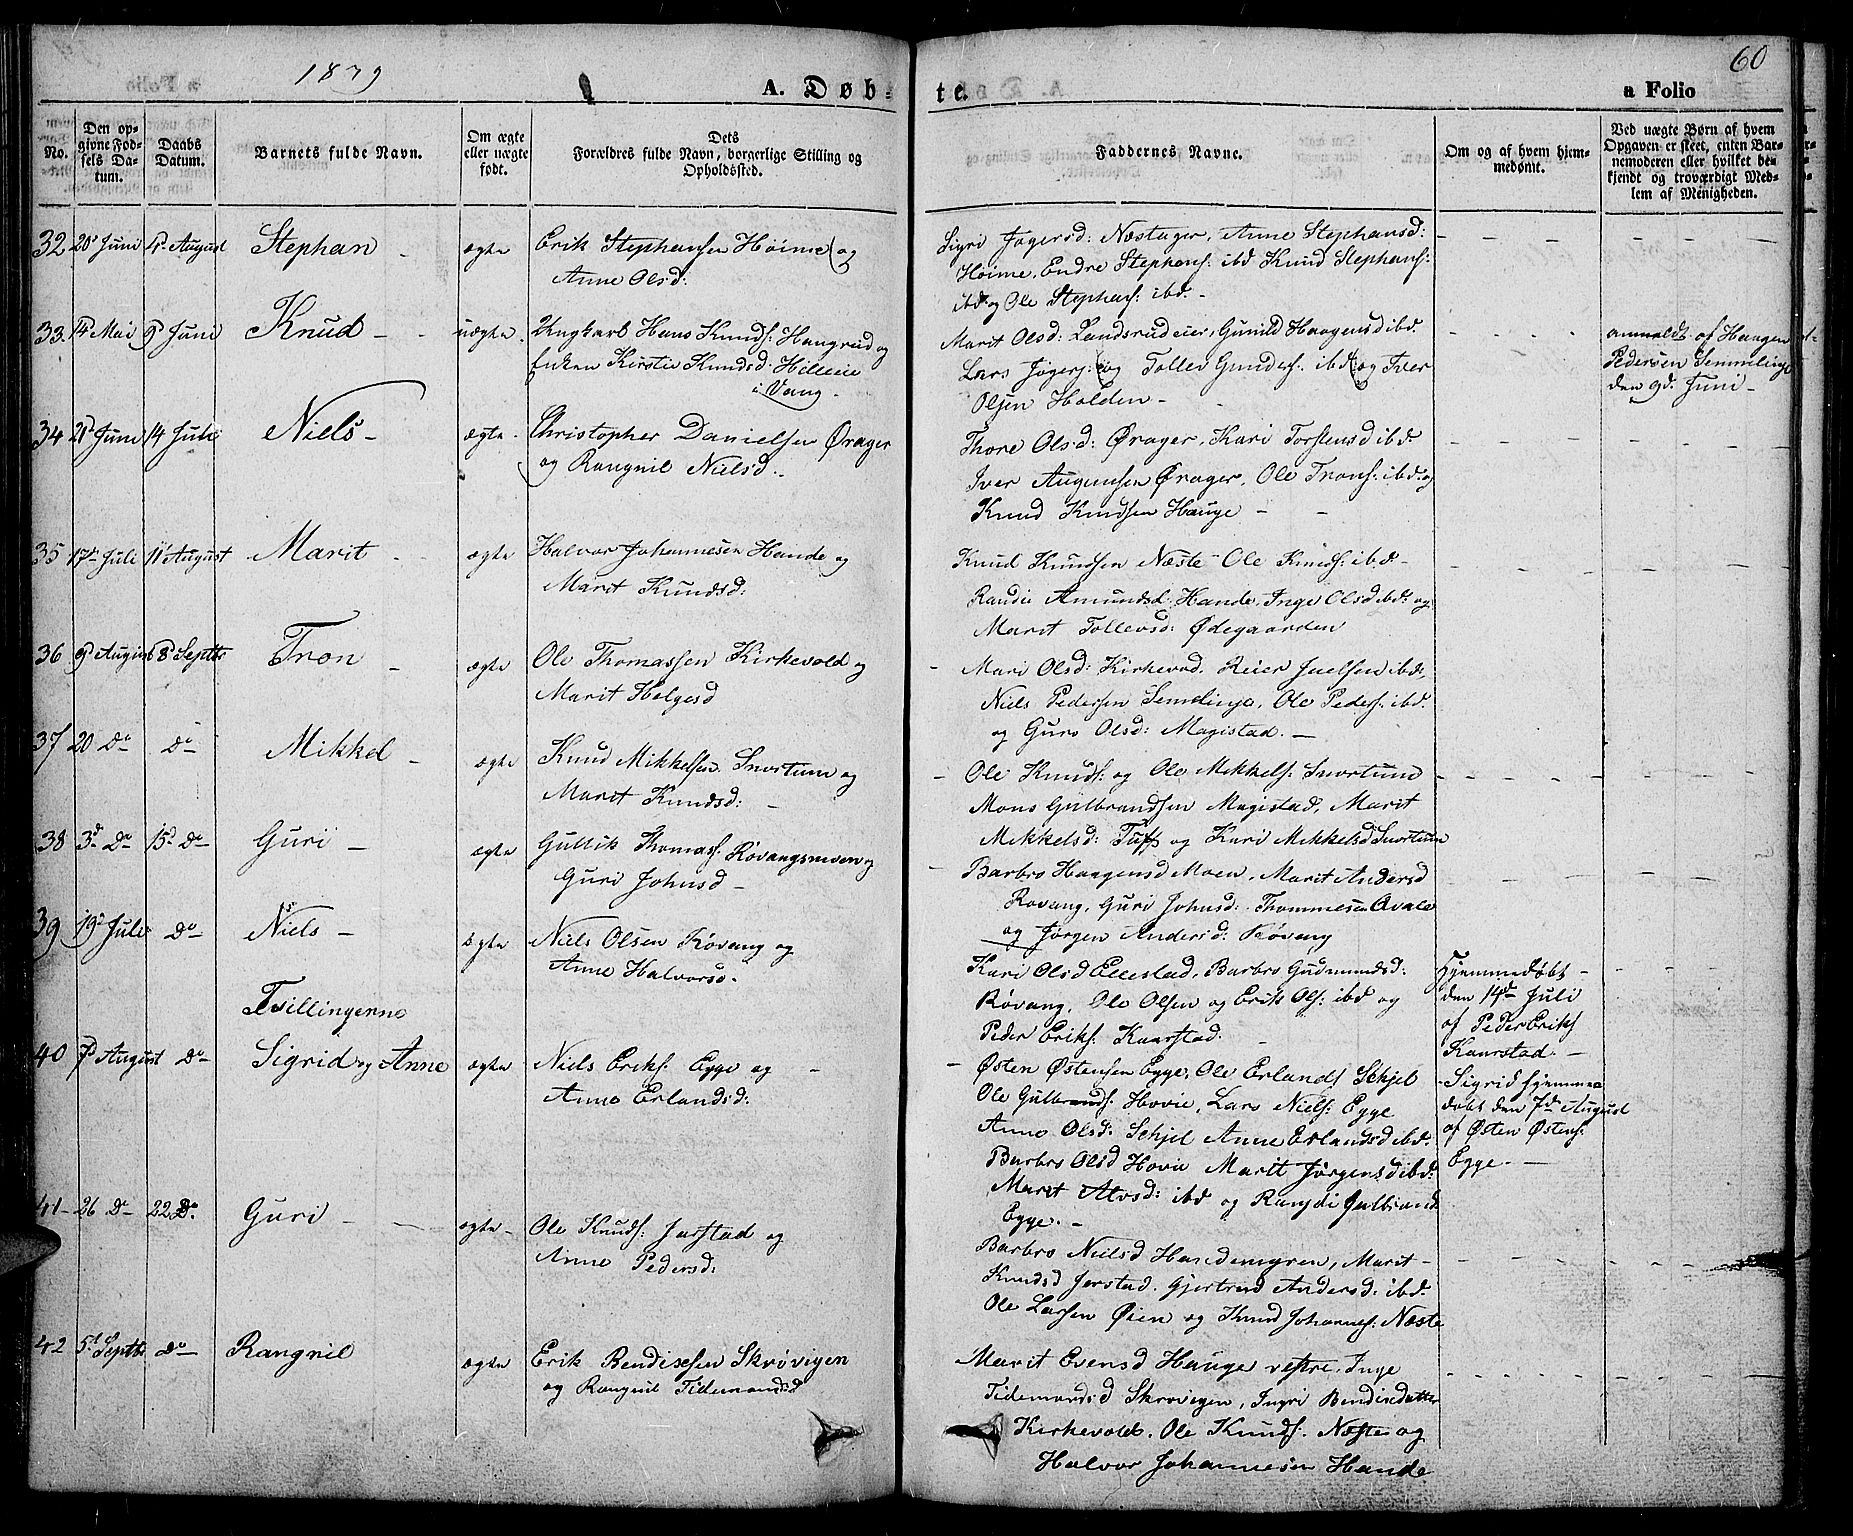 1839
A. Døb-
te.
a Folio
60
No.
Den op-
givne Fød-
sels Da-
tum.
Daabs
Datum.
Barnets fulde Navn.
Om ægte
eller uægte
født.
Dets
Forældres fulde Navn, borgerlige Stilling og
Opholdssted.
Faddernes Navne.
Om og af hvem hjem-
medøbt.
Ved uægte Børn af hvem
Opgaven er skeet, enten Bar-
nemoderen eller hvilket be-
kjendt og troværdigt Med-
lem af Menigheden.
32 20d Juni 4d August Stephan - ægte Erik Stephensen Høime og
Anne Olsd:
Sigri Jogersd: Næstager, Anne Stephansd:
Høime, Endre Stephens: ibd Knud Stephans:
ibd: og Ole Stephans: ibd. -
33. 14d Mai 9d Juni Knud - uægte. Ungkarl Hans Knuds: Haugrud og
Enken Kirstie Knudsd. Hilleie
i Vang.
Marit Olsd: Landsrudeier, Gunild Haagensd ibd.
Lars Jogers: og Tollev Gunders. ibd og Iver
Olsen Holden -
anmeldt af Haagen
Pedersen Semmlinge
den 9d. Juni -
34 21d Juni 14 Juli Niels - ægte. Christopher Danielsen Ørager
og Rangnil Nielsd.
Thore Olsd: Ørager, Kari Torstensd ibd.
Iver Augunsen Ørager, Ole Trons: ibd: og
Knud Knudsen Hauge -
35 17d Juli 11d August Marit - ægte Halvor Johannesen Hande og
Marit Knudsd:
Knud Knudsen Næste Ole Knuds: ibd. -
Randie Amundsd. Hande, Inge Olsd ibd: og
Marit Tollevsd: Ødegaarden
36 9d August 8 Septbr Tron - ægte Ole Thomassen Kirkevold og
Marit Helgesd
Mari Olsd: Kirkevod, Reier Juelsen ibd:
Niels Pedersen Semelinge, Ole Peders: ibd.
og Guro Olsd: Magistad. -
37 20 do do Mikkel - ægte Knud Mikkelsen Snortum og
Marit Knudsd: -
Ole Knuds: og Ole Mikkels: Snortum
Mons Gulbrandsen Magistad, Marit
Mikkelsd: Toff og Kari Mikkelsd Snortum
38 3d do 15d do Guri - ægte Gullik Thomass: Røvangsmoen og
Guri Johnsd -
Barbro Haagensd Moen, Marit Andersd
Rovang, Guri Johnsd. Thommesen Qvale
og Jørgen Andersd: Røvang
39 19d Juli do Niels - ægte Niels Olsen Røvang og
Anne Halvorsd.
Kari Olsd Ellestad, Barbro Gudmundsd:
Røvang, Ole Olsen og Erik Ols: ibd og
Peder Eriks: Kaarstad.
Hjemmedøbt -
den 14d Juli
af Peder Eriks
Kaarstad. -
Tvillingerne
40 7d August do Sigrid og Anne ægte Niels Eriks: Egge og -
Anne Erlandsd:
Østen Østensen Egge, Ole Erlands Schjel
Ole Gulbrands: Hovie, Lars Niels: Egge
Anne Olsd: Schjel Anne Erlandsd ibd:
Barbro Olsd Hovie Marit Jørgensd ibd:
Marit Alvsd: ibd og Rangdi Gulbrand
Egge. -
- Sigrid hjemme
døbt den 7de August
af Østen Østens:
Egge. -
41 - 26 do 22 do. Guri - ægte - Ole Knuds: Jarstad og
Anne Pedersd:
Barbro Nielsd Handemyren, Marit -
Knudsd Jarstad. Gjertrud Andersd: ibd.
Ole Larsen Øien og Knud Johannes: Næste
42 5d Septbr do Rangnil ægte Erik Bendixsen Skrøvigen
og Rangnil Tidemandsd
Marit Evensd Hauge vestre, Inge
Tidemandsd Skrøvigen, Ingri Bendixdatter
Kirkevold, Ole Knuds: Næste og
Halvor Johannesen Hande